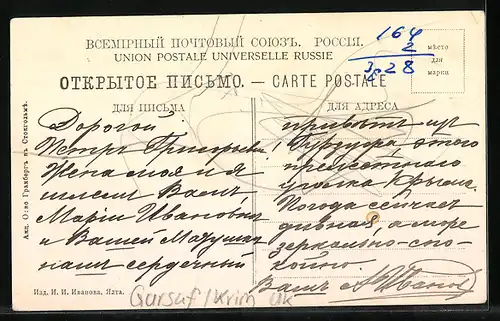 ВСЕМІРНЫЙ ПОЧТОВЫЙ СОЮЗЪ. РОССІЯ.
UNION POSTALE UNIVERSELLE RUSSIE
ОТКРЫТОЕ ПИСЬМО. — CARTE POSTALE
164
2
3/8 28
мѣсто
для
марки
ДЛЯ ПИСЬМА
Дорогой
Петръ Григорьевичъ!
Жена моя и я
шлемъ Вамъ,
Маріи Ивановнѣ
и Вашей Мамушкѣ
нашъ сердечный
ДЛЯ АДРЕСА
привѣтъ изъ
Гурзуфа, этого
прелестнаго
уголка Крыма.
Погода сейчасъ
дивная, а море
зеркально-спо-
койно.
Вашъ А Иванов
Акц. О-во Гранбергъ въ Стокгольмѣ.
Изд. И. И. Иванова, Ялта.
Gursuf / Krim Uk